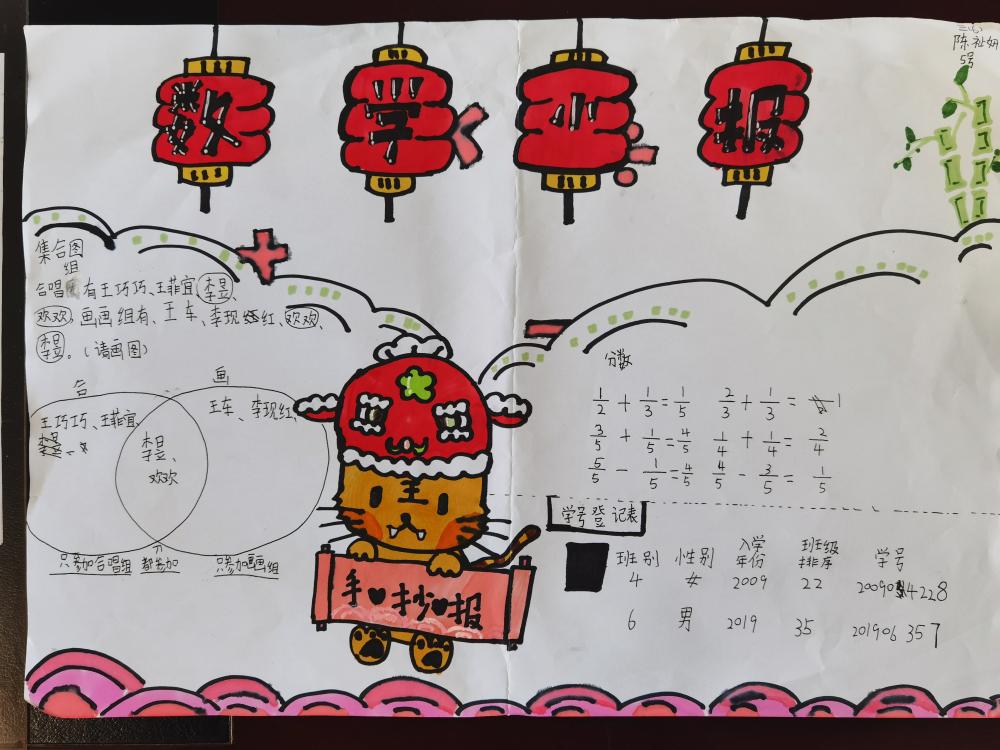 数学小报
三(6)
陈祉妍
5号
集合图
组
合唱 有王巧巧、王菲宜、李昱、
欢欢,画画组有、王车、李现红、欢欢、
李昱。(请画图)
合 画
王巧巧、王菲宜、
李昱、
王车、李现红、
李昱、
欢欢
只参加合唱组 都参加 只参加画画组
分数
1/2 + 1/3 = 1/5 2/3 + 1/3 = 1
3/5 + 1/5 = 4/5 1/4 + 1/4 = 2/4
5/5 - 1/5 = 4/5 4/5 - 3/5 = 1/5
王
手抄报
学号登记表
班别 性别 入学年份 班级排序 学号
4 女 2009 22 200904228
6 男 2019 35 201906357